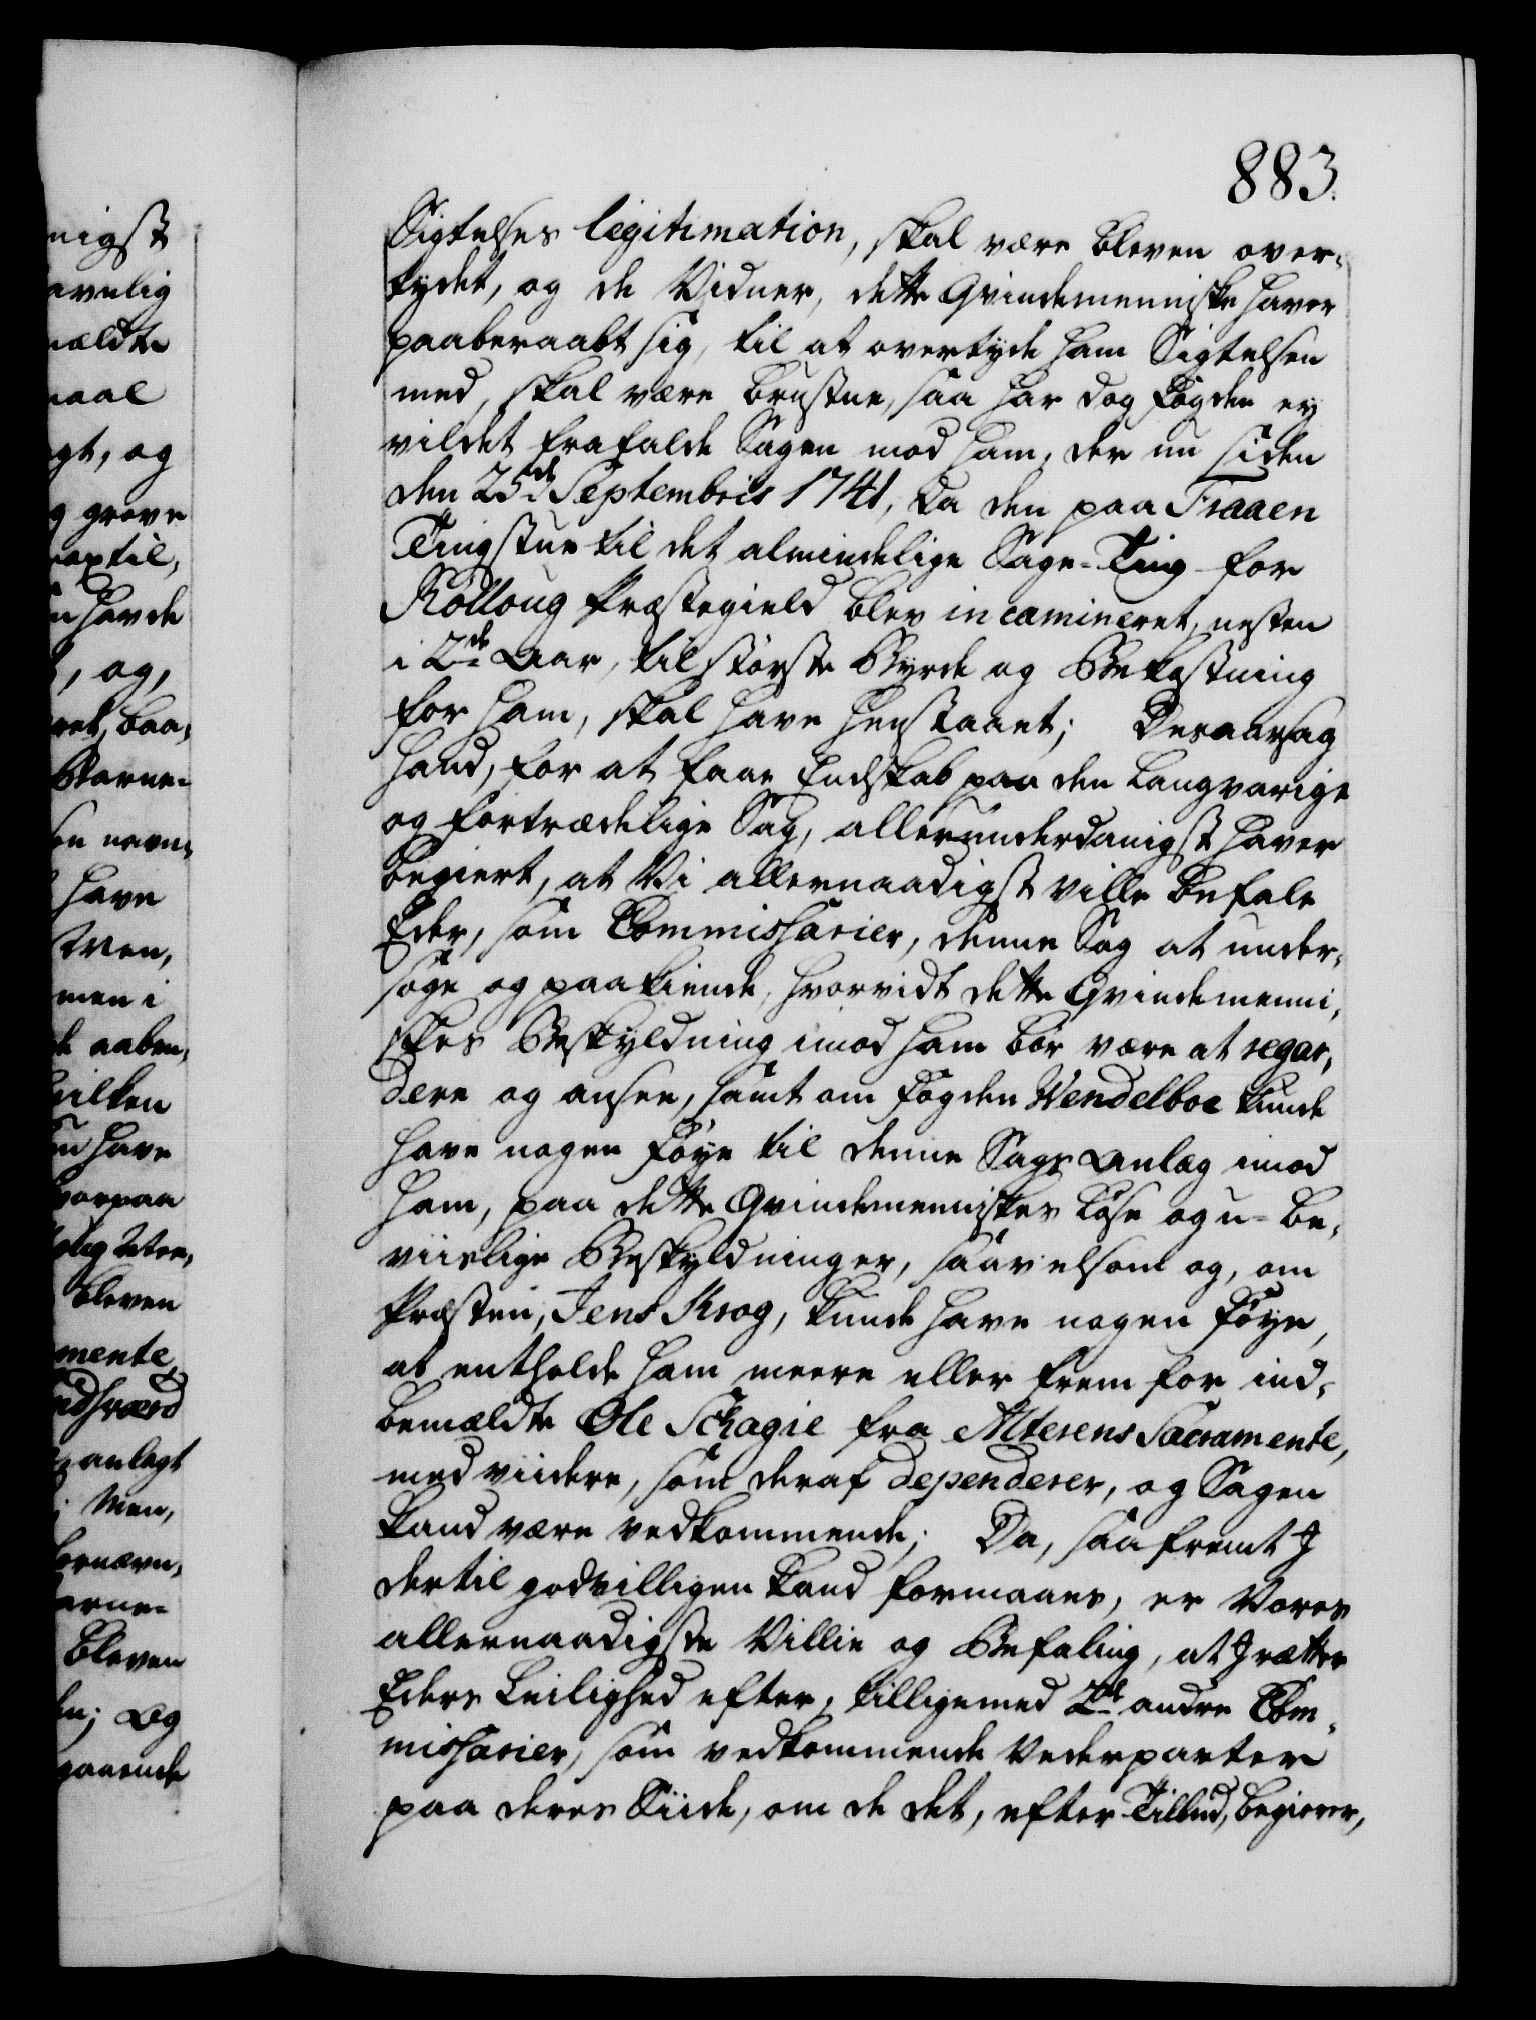 883.
Sigtelses legitimation, skal være bleven over-
tydet, og de Vidner, dette Qvindemenniske haver
paaberaabt sig, til at overtyde ham Sigtelsen
med, skal være brustne, saa har dog Fogden ey
vildet frafalde Sagen mod ham, der nu siden
den 25de Septembris 1741, da den paa Traaen
Tingstue til det almindelige Sage-Ting for
Rolloug Præstegield blev incamineret, nesten
i 2de Aar, til største Byrde og Bekostning
for ham, skal have henstaaet; Desaarsag
hand, for at faae Endskab paa den langvarige
og fortrædelige Sag, allerunderdanigst haver
begiert, at Vi allernaadigst ville befale
Eder, som Commissarier, denne Sag at under-
søge og paakiende, hvorvidt dette Qvindemenni-
skes Beskyldning imod ham bør være at regar-
dere og ansee, samt om Fogden Wendelboe kunde
have nogen Føye til denne Sags Anlæg imod
ham, paa dette Qvindemenniskes løse og u-be-
viislige Beskyldninger, saavelsom og, om
Præsten, Jens Krog, kunde have nogen Føye,
at entholde ham meere eller frem for ind-
bemældte Ole Schagie fra Alterens Sacramente,
med viidere, som deraf dependerer, og Sagen
kand være vedkommende; Da, saafremt I
dertil godvilligen kand formaaes, er Vores
allernaadigste Villie og Befaling, at I rætter
Eders Leilighed efter, tilligemed 2de andre Com-
missarier, som vedkommende Vederparter
paa deres Siide, om de det, efter Tilbud, begierer,